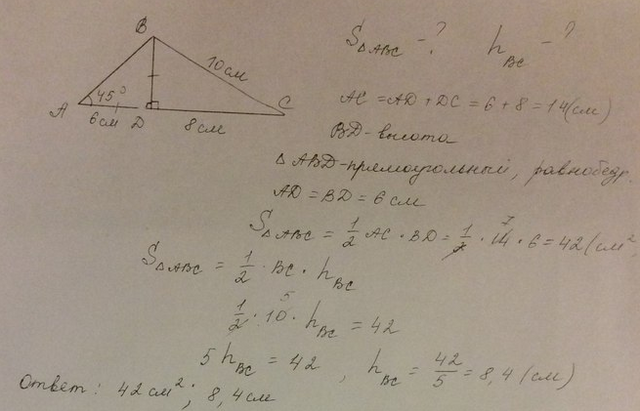 S△ABC - ?   h BC - ?
B
10 см
45°
A
6 см
D
8 см
C
AC = AD + DC = 6 + 8 = 14 (см)
BD - высота
△ABD - прямоугольный, равнобедр.
AD = BD = 6 см
S△ABC = 1/2 AC · BD = 1/2 · 14 7 · 6 = 42 (см²
S△ABC = 1/2 · BC · h BC
1/2 · 10 5 · h BC = 42
5 h BC = 42 , h BC = 42/5 = 8,4 (см)
Ответ: 42 см²; 8,4 см